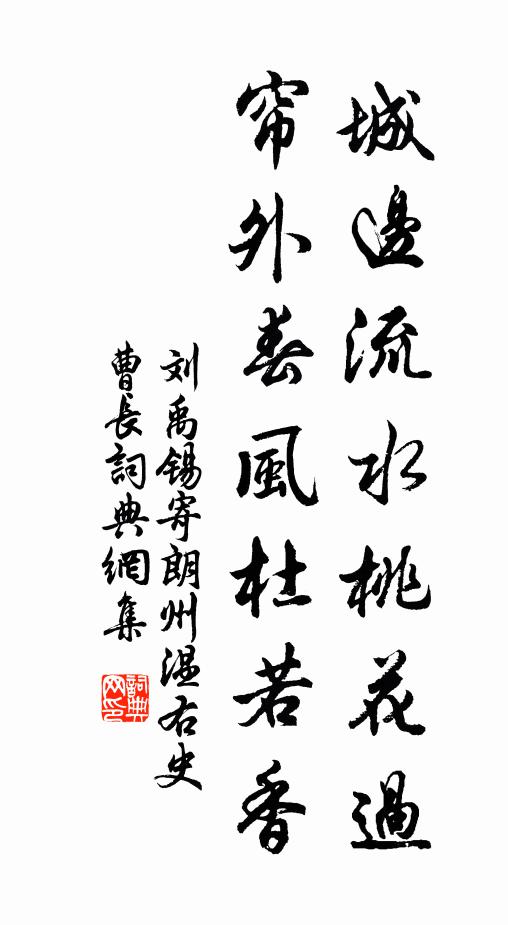 城邊流水桃花過
帘外春風杜若香
刘禹锡寄朗州温右史
曹長詞典網集
詞典
网印